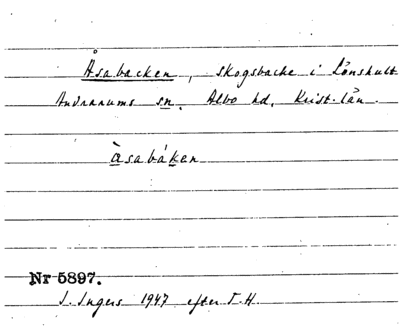 Åsabacken, skogsbacke i Lönshult
Andrarums sn. Albo hd, Krist. län.
àsabáken
Nr 5897.
I. Ingers 1947 efter T.H.